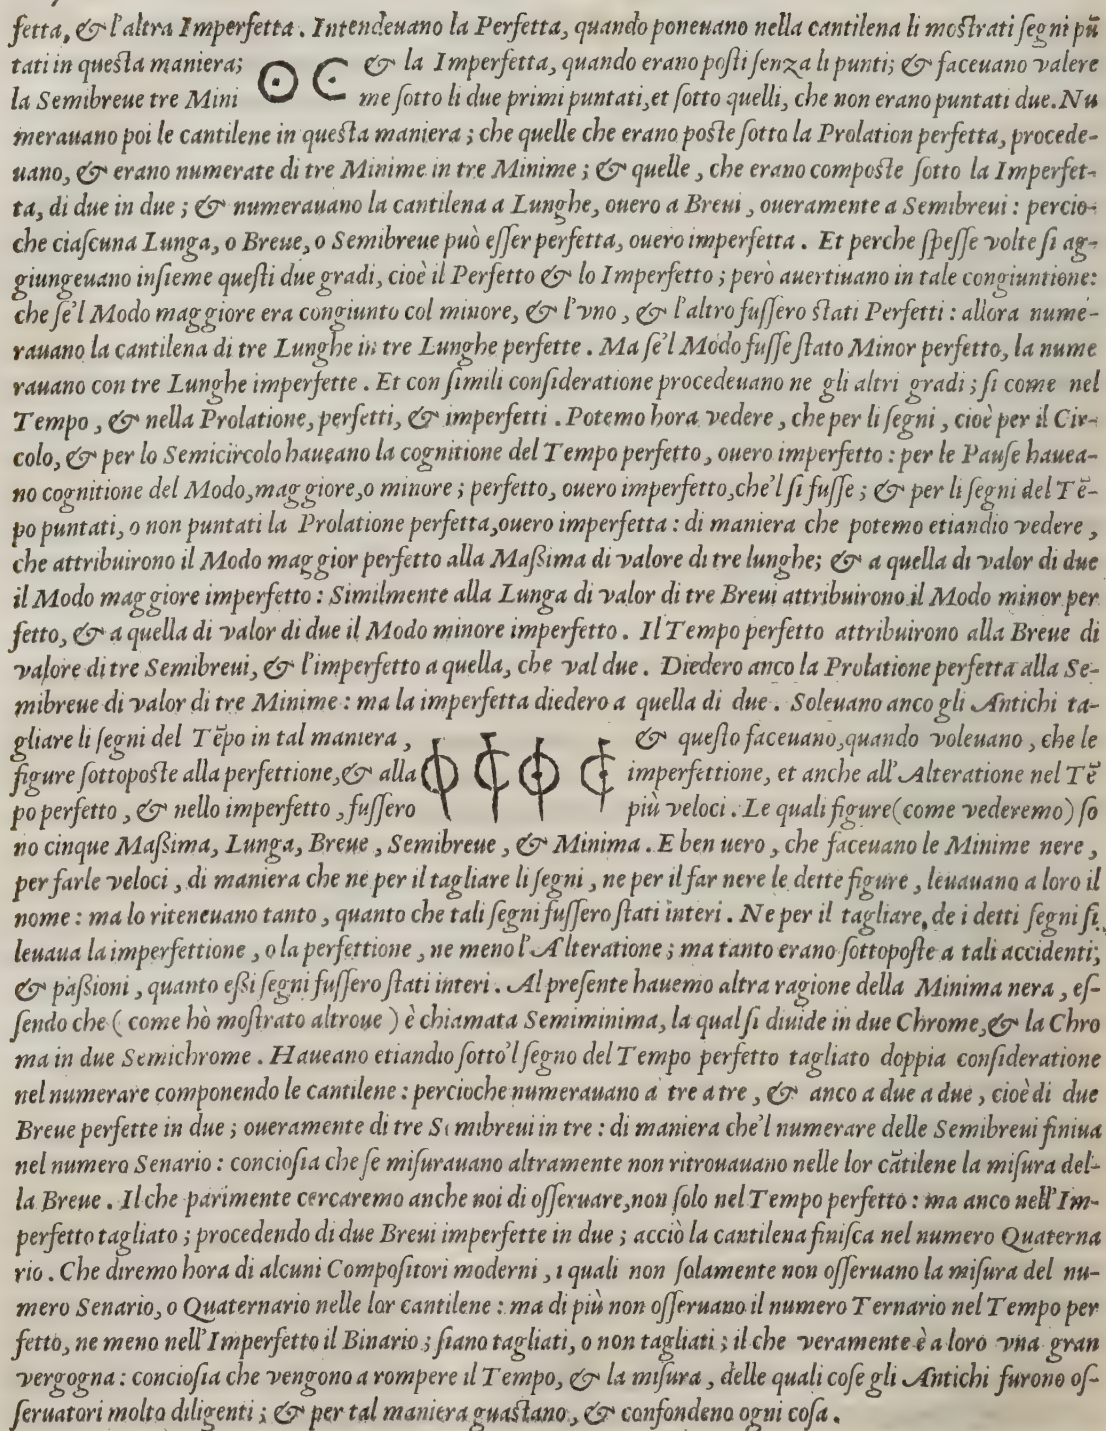 fetta, & l'altra Imperfetta. Intendeuano la Perfetta, quando poneuano nella cantilena li moſtrati ſegni pũ
tati in queſta maniera; & la Imperfetta, quando erano poſti ſenza li punti; & faceuano valere
la Semibreue tre Mini me ſotto li due primi puntati, et ſotto quelli, che non erano puntati due. Nu
merauano poi le cantilene in queſta maniera; che quelle che erano poſte ſotto la Prolation perfetta, procede-
uano, & erano numerate di tre Minime in tre Minime; & quelle, che erano compoſte ſotto la Imperfet-
ta, di due in due; & numerauano la cantilena a Lunghe, ouero a Breui, oueramente a Semibreui: percio-
che ciaſcuna Lunga, o Breue, o Semibreue può eſſer perfetta, ouero imperfetta. Et perche ſpeſſe volte ſi ag-
giungeuano inſieme queſti due gradi, cioè il Perfetto & lo Imperfetto; però auertiuano in tale congiuntione:
che ſe'l Modo maggiore era congiunto col minore, & l'vno, & l'altro fuſſero ſtati Perfetti: allora nume-
rauano la cantilena di tre Lunghe in tre Lunghe perfette. Ma ſe'l Modo fuſſe ſtato Minor perfetto, la nume
rauano con tre Lunghe imperfette. Et con ſimili conſideratione procedeuano ne gli altri gradi; ſi come nel
Tempo, & nella Prolatione, perfetti, & imperfetti. Potemo hora vedere, che per li ſegni, cioè per il Cir-
colo, & per lo Semicircolo haueano la cognitione del Tempo perfetto, ouero imperfetto: per le Pauſe hauea-
no cognitione del Modo, maggiore, o minore; perfetto, ouero imperfetto, che'l ſi fuſſe; & per li ſegni del Tẽ-
po puntati, o non puntati la Prolatione perfetta, ouero imperfetta: di maniera che potemo etiandio vedere,
che attribuirono il Modo maggior perfetto alla Maſsima di valore di tre lunghe; & a quella di valor di due
il Modo maggiore imperfetto: Similmente alla Lunga di valor di tre Breui attribuirono il Modo minor per
fetto, & a quella di valor di due il Modo minore imperfetto. Il Tempo perfetto attribuirono alla Breue di
valore di tre Semibreui, & l'imperfetto a quella, che val due. Diedero anco la Prolatione perfetta alla Se-
mibreue di valor di tre Minime: ma la imperfetta diedero a quella di due. Soleuano anco gli Antichi ta-
gliare li ſegni del Tẽpo in tal maniera, & queſto faceuano, quando voleuano, che le
figure ſottopoſte alla perfettione, & alla imperfettione, et anche all'Alteratione nel Tẽ
po perfetto, & nello imperfetto, fuſſero più veloci. Le quali figure (come vederemo) ſo
no cinque Maſsima, Lunga, Breue, Semibreue, & Minima. E ben uero, che faceuano le Minime nere,
per farle veloci, di maniera che ne per il tagliare li ſegni, ne per il far nere le dette figure, leuauano a loro il
nome: ma lo riteneuano tanto, quanto che tali ſegni fuſſero ſtati interi. Ne per il tagliare, de i detti ſegni ſi
leuaua la imperfettione, o la perfettione, ne meno l'Alteratione; ma tanto erano ſottopoſte a tali accidenti,
& paſsioni, quanto eſsi ſegni fuſſero ſtati interi. Al preſente hauemo altra ragione della Minima nera, eſ-
ſendo che (come hò moſtrato altroue) è chiamata Semiminima, la qual ſi diuide in due Chrome, & la Chro
ma in due Semichrome. Haueano etiandio ſotto'l ſegno del Tempo perfetto tagliato doppia conſideratione
nel numerare componendo le cantilene: percioche numerauano a tre a tre, & anco a due a due, cioè di due
Breue perfette in due; oueramente di tre Semibreui in tre: di maniera che'l numerare delle Semibreui finiua
nel numero Senario: concioſia che ſe miſurauano altramente non ritrouauano nelle lor cãtilene la miſura del-
la Breue. Il che parimente cercaremo anche noi di oſſeruare, non ſolo nel Tempo perfetto: ma anco nell'Im-
perfetto tagliato; procedendo di due Breui imperfette in due; acciò la cantilena finiſca nel numero Quaterna
rio. Che diremo hora di alcuni Compoſitori moderni, i quali non ſolamente non oſſeruano la miſura del nu-
mero Senario, o Quaternario nelle lor cantilene: ma di più non oſſeruano il numero Ternario nel Tempo per
fetto, ne meno nell'Imperfetto il Binario; ſiano tagliati, o non tagliati; il che veramente è a loro vna gran
vergogna: concioſia che vengono a rompere il Tempo, & la miſura, delle quali coſe gli Antichi furono oſ-
ſeruatori molto diligenti; & per tal maniera guaſtano, & confondeno ogni coſa.